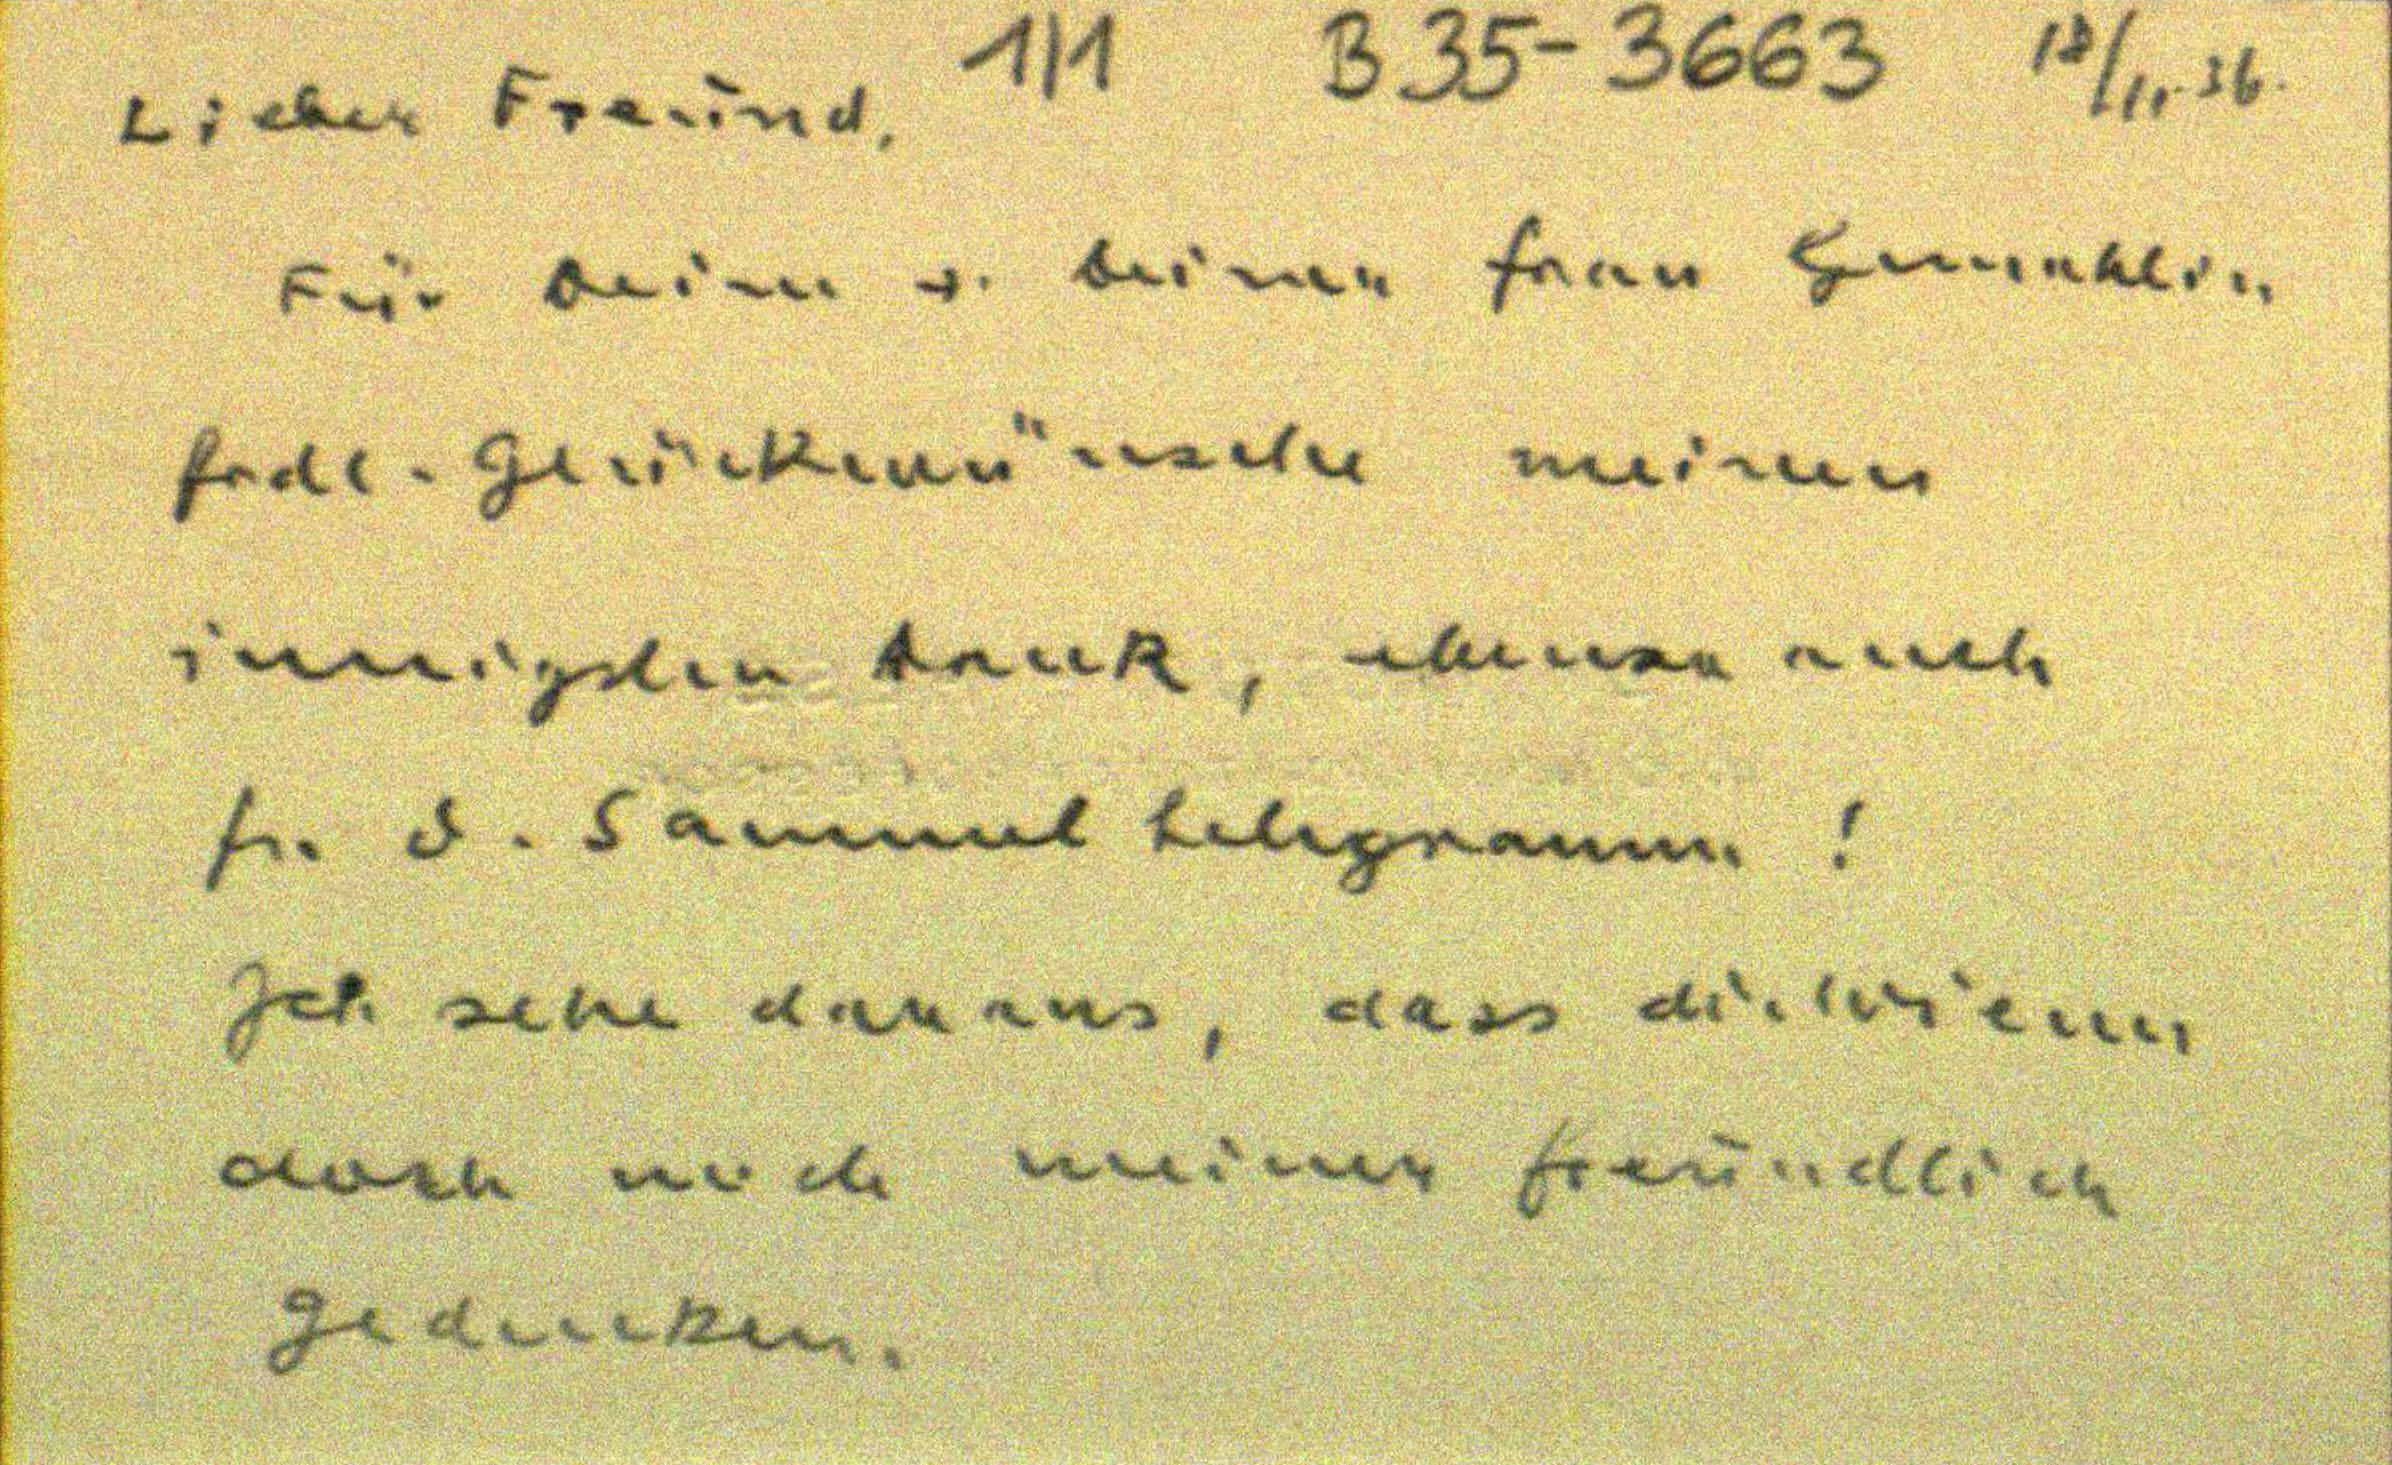 1/1 B35-3663 18/11.36.
Lieber Freund,
Für Deine u. Deiner Frau Gemahlin
frdl. Glückwünsche meinen
innigsten Dank, ebenso auch
fr. d. Sammeltelegramm!
Ich sehe daraus, dass die Wiener
doch noch meiner freundlich
gedenken.